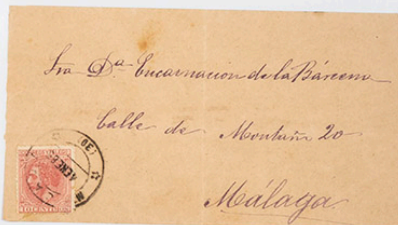 Sra Dª Encarnacion de la Bárcena
Calle de Montaño 20
Málaga